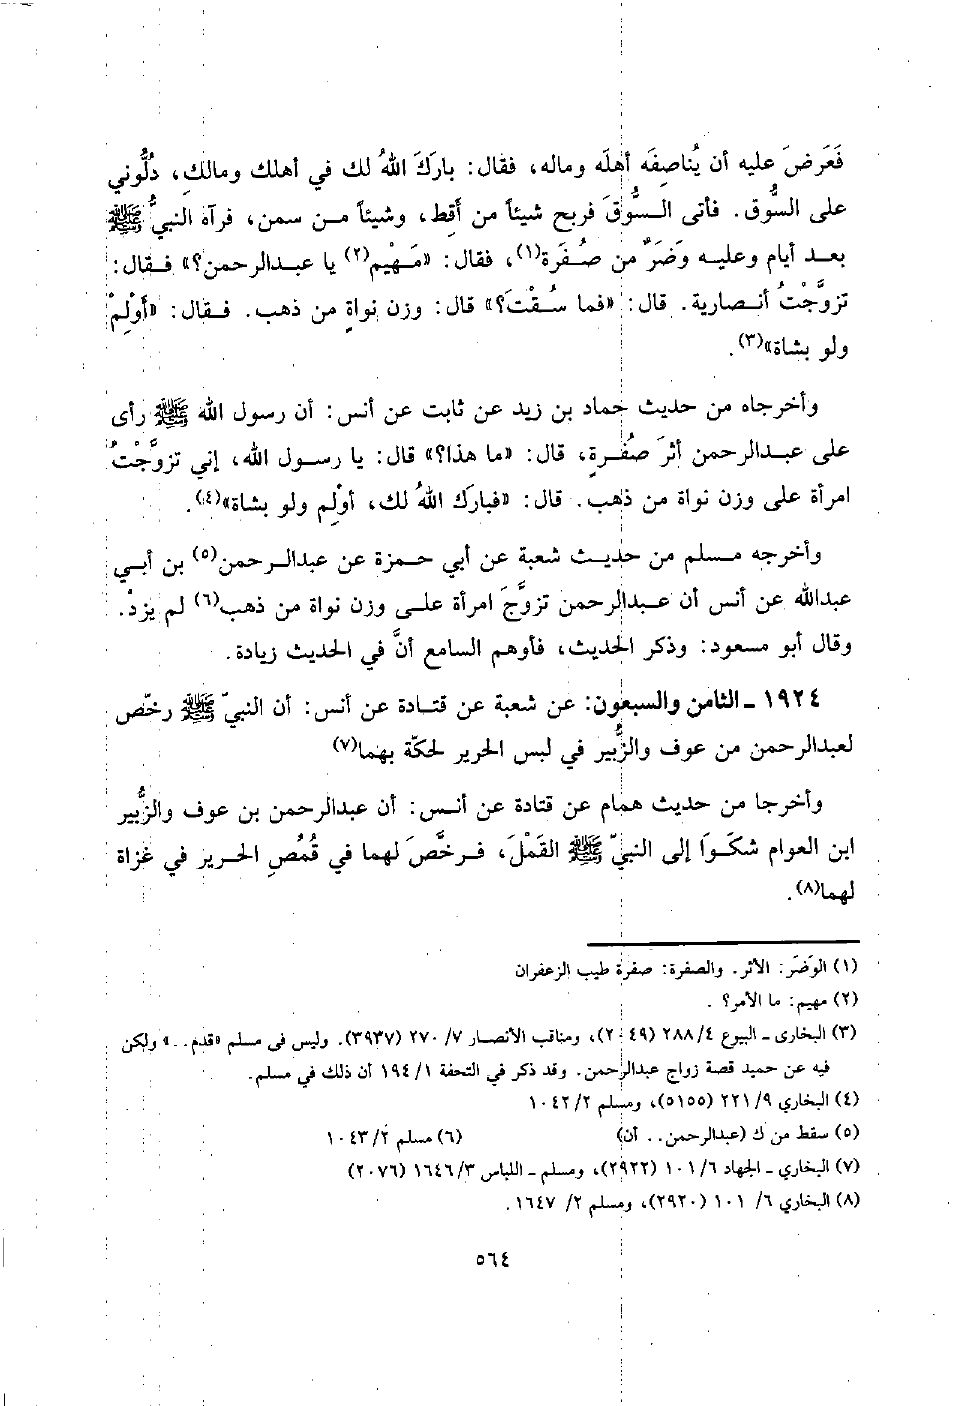 فَعَرضَ عليه أن يُناصِفَه أهلَه وماله، فقال: بارَكَ اللهُ لك في أهلك ومالكِ، دُلُّوني
على السُّوق. فأتى السُّوقَ فربح شيئاً من أَقِط، وشيئاً من سمن، فرآه النبيُّ ﷺ
بعد أيام وعليه وَضَرٌ من صُفَرة(١)، فقال: «مَهْيم(٢) يا عبدالرحمن؟» فقال:
تزوَّجْتُ أنصارية. قال: «فما سُقْتَ؟» قال: وزن نواةٍ من ذهب. فقال: «أَوْلِمْ
ولو بشاة»(٣).
وأخرجاه من حديث حماد بن زيد عن ثابت عن أنس: أن رسول الله ﷺ رأى
على عبدالرحمن أثرَ صُفْرةٍ، قال: «ما هذا؟» قال: يا رسول الله، إني تزوَّجْتُ
امرأة على وزن نواة من ذهب. قال: «فبارَك اللهُ لك، أوْلم ولو بشاة»(٤).
وأخرجه مسلم من حديث شعبة عن أبي حمزة عن عبدالرحمن(٥) بن أبي
عبدالله عن أنس أن عبدالرحمن تزوَّجَ امرأة على وزن نواة من ذهب(٦) لم يزدْ.
وقال أبو مسعود: وذكر الحديث، فأوهم السامع أنَّ في الحديث زيادة.
١٩٢٤ - الثامن والسبعون: عن شعبة عن قتادة عن أنس: أن النبيّ ﷺ رخّص
لعبدالرحمن من عوف والزُّبير في لبس الحرير لحكّة بهما(٧)
وأخرجا من حديث همام عن قتادة عن أنس: أن عبدالرحمن بن عوف والزُّبير
ابن العوام شكَوَا إلى النبيّ ﷺ القَمْلَ، فرخَّصَ لهما في قُمُصِ الحرير في غزاة
لهما(٨).
(١) الوَضَرَ: الأثر. والصفرة: صفرة طيب الزعفران
(٢) مهيم: ما الأمر؟ .
(٣) البخارى - البيوع ٤/ ٢٨٨ (٢٠٤٩)، ومناقب الأنصار ٧/ ٢٧٠ (٣٩٣٧). وليس فى مسلم «قدم..» ولكن
فيه عن حميد قصة زواج عبدالرحمن. وقد ذكر في التحفة ١/ ١٩٤ أن ذلك في مسلم.
(٤) البخاري ٩/ ٢٢١ (٥١٥٥)، ومسلم ٢/ ١٠٤٢
(٥) سقط من ك (عبدالرحمن.. أن) (٦) مسلم ٢/ ١٠٤٣
(٧) البخاري - الجهاد ٦/ ١٠١ (٢٩٢٢)، ومسلم - اللباس ٣/ ١٦٤٦ (٢٠٧٦)
(٨) البخاري ٦/ ١٠١ (٢٩٢٠)، ومسلم ٢/ ١٦٤٧.
٥٦٤